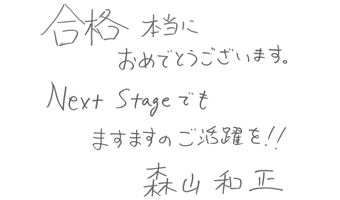 合格 本当に
おめでとうございます。
Next Stageでも
ますますのご活躍を!!
森山和正